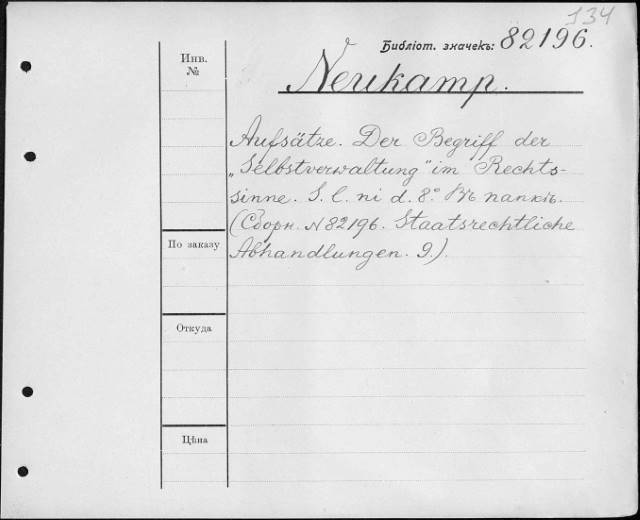 134
Библіот. значекъ: 82196.
Инв.
№
Neukamp.
Aufsätze. Der Begriff der
„Selbstverwaltung" im Rechts-
sinne. S. l. ni d. 8° Въ папкѣ.
(Сборн. N 82196. Staatsrechtliche
Abhandlungen. 9.).
По заказу
Откуда
Цѣна